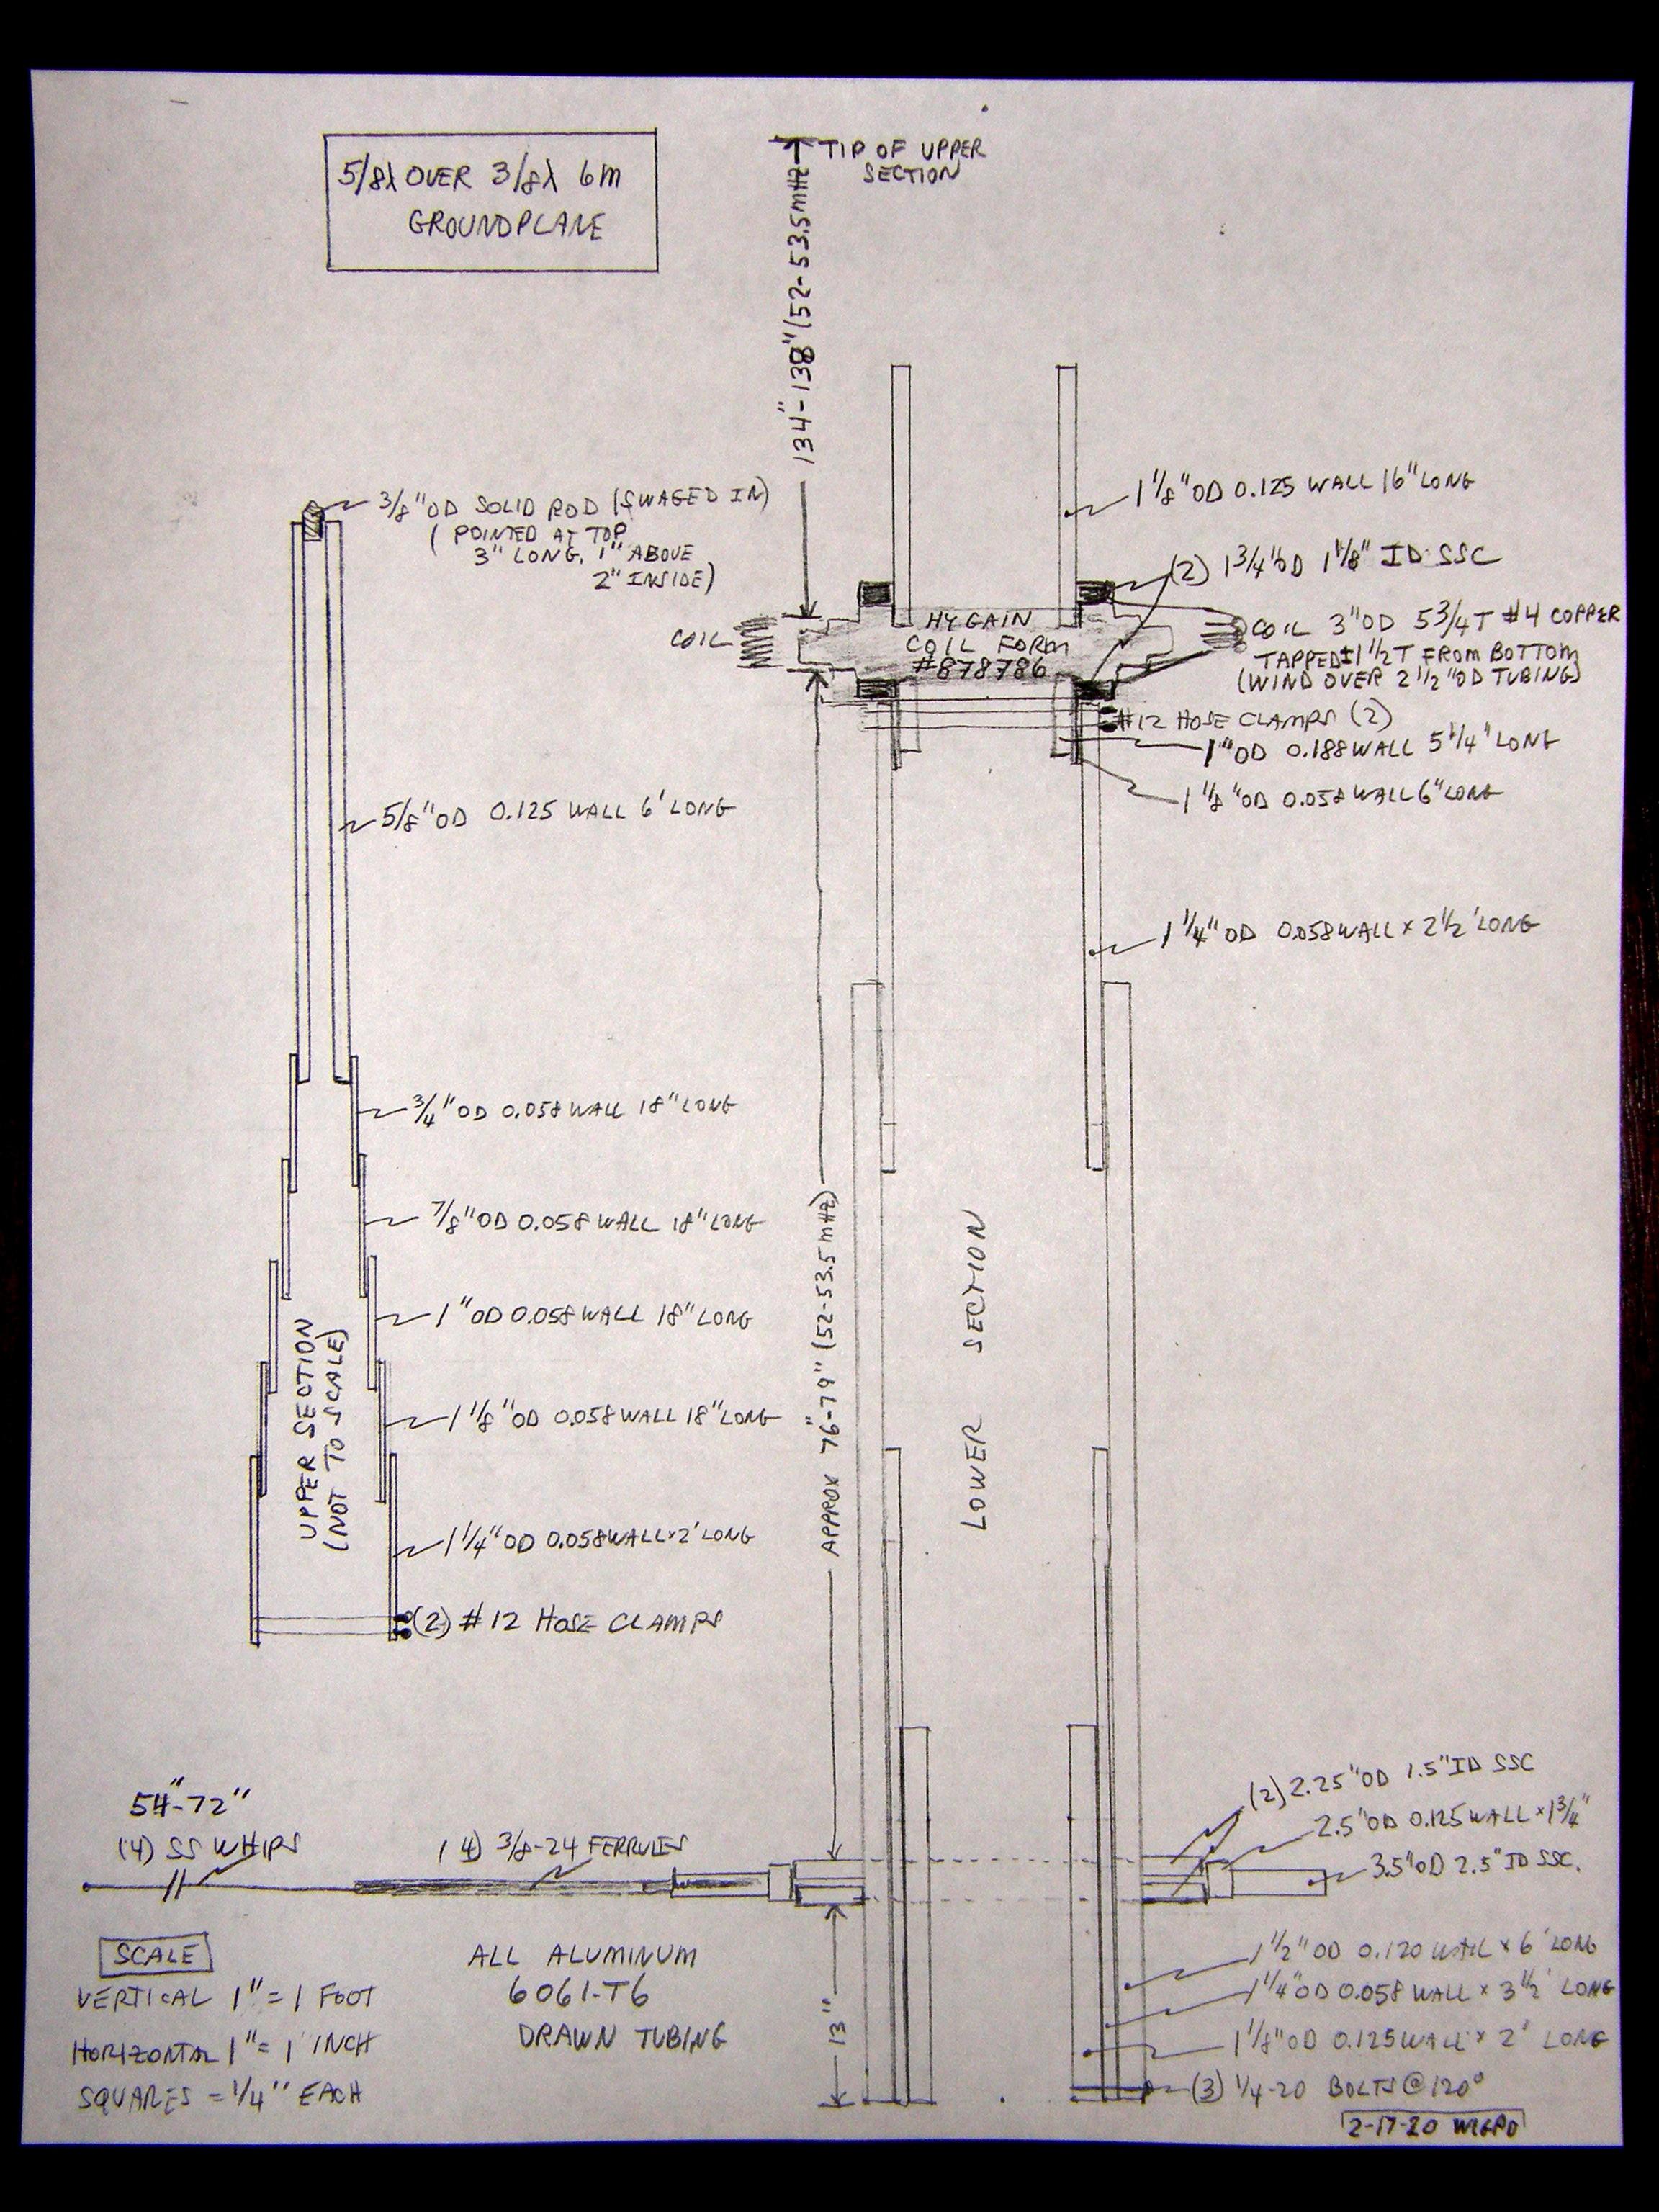 5/8λ OVER 3/8λ 6M
GROUNDPLANE
TIP OF UPPER
SECTION
134"-138" (52-53.5 MHZ)
3/8" OD SOLID ROD (SWAGED IN)
(POINTED AT TOP
3" LONG, 1" ABOVE
2" INSIDE)
1 1/8" OD 0.125 WALL 16" LONG
(2) 1 3/4" OD 1 1/8" ID SSC
COIL
HYGAIN
COIL FORM
#878786
COIL 3" OD 5 3/4 T #4 COPPER
TAPPED ±1 1/2 T FROM BOTTOM
(WIND OVER 2 1/2" OD TUBING)
#12 HOSE CLAMPS (2)
1" OD 0.188 WALL 5 1/4" LONG
1 1/8" OD 0.058 WALL 6" LONG
5/8" OD 0.125 WALL 6' LONG
1 1/4" OD 0.058 WALL x 2 1/2' LONG
3/4" OD 0.058 WALL 18" LONG
7/8" OD 0.058 WALL 18" LONG
1" OD 0.058 WALL 18" LONG
1 1/8" OD 0.058 WALL 18" LONG
1 1/4" OD 0.058 WALL x 2' LONG
(2) #12 HOSE CLAMPS
UPPER SECTION
(NOT TO SCALE)
APPROX 76"-79" (52-53.5 MHZ)
LOWER SECTION
54"-72"
(4) SS WHIPS
(4) 3/8-24 FERRULES
(2) 2.25" OD 1.5" ID SSC
2.5" OD 0.125 WALL x 1 3/4"
3.5" OD 2.5" ID SSC.
1 1/2" OD 0.120 WALL x 6' LONG
1 1/4" OD 0.058 WALL x 3 1/2' LONG
1 1/8" OD 0.125 WALL x 2' LONG
(3) 1/4-20 BOLTS @ 120°
13"
SCALE
VERTICAL 1" = 1 FOOT
HORIZONTAL 1" = 1 INCH
SQUARES = 1/4" EACH
ALL ALUMINUM
6061-T6
DRAWN TUBING
2-17-20